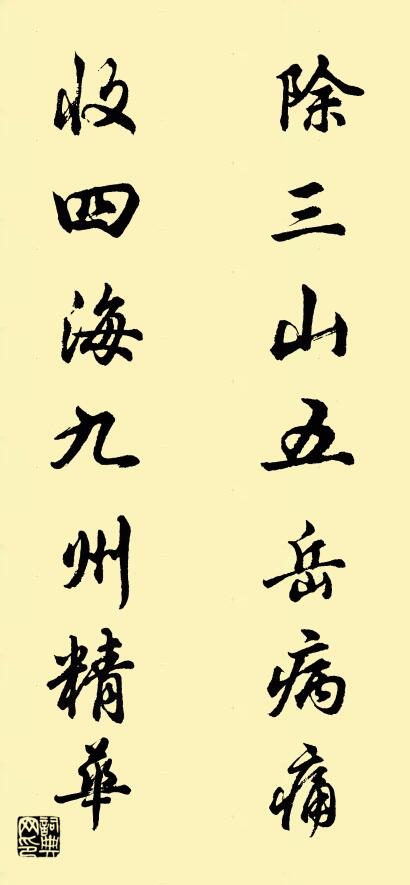 除三山五岳病痛
收四海九州精華
詞典网印